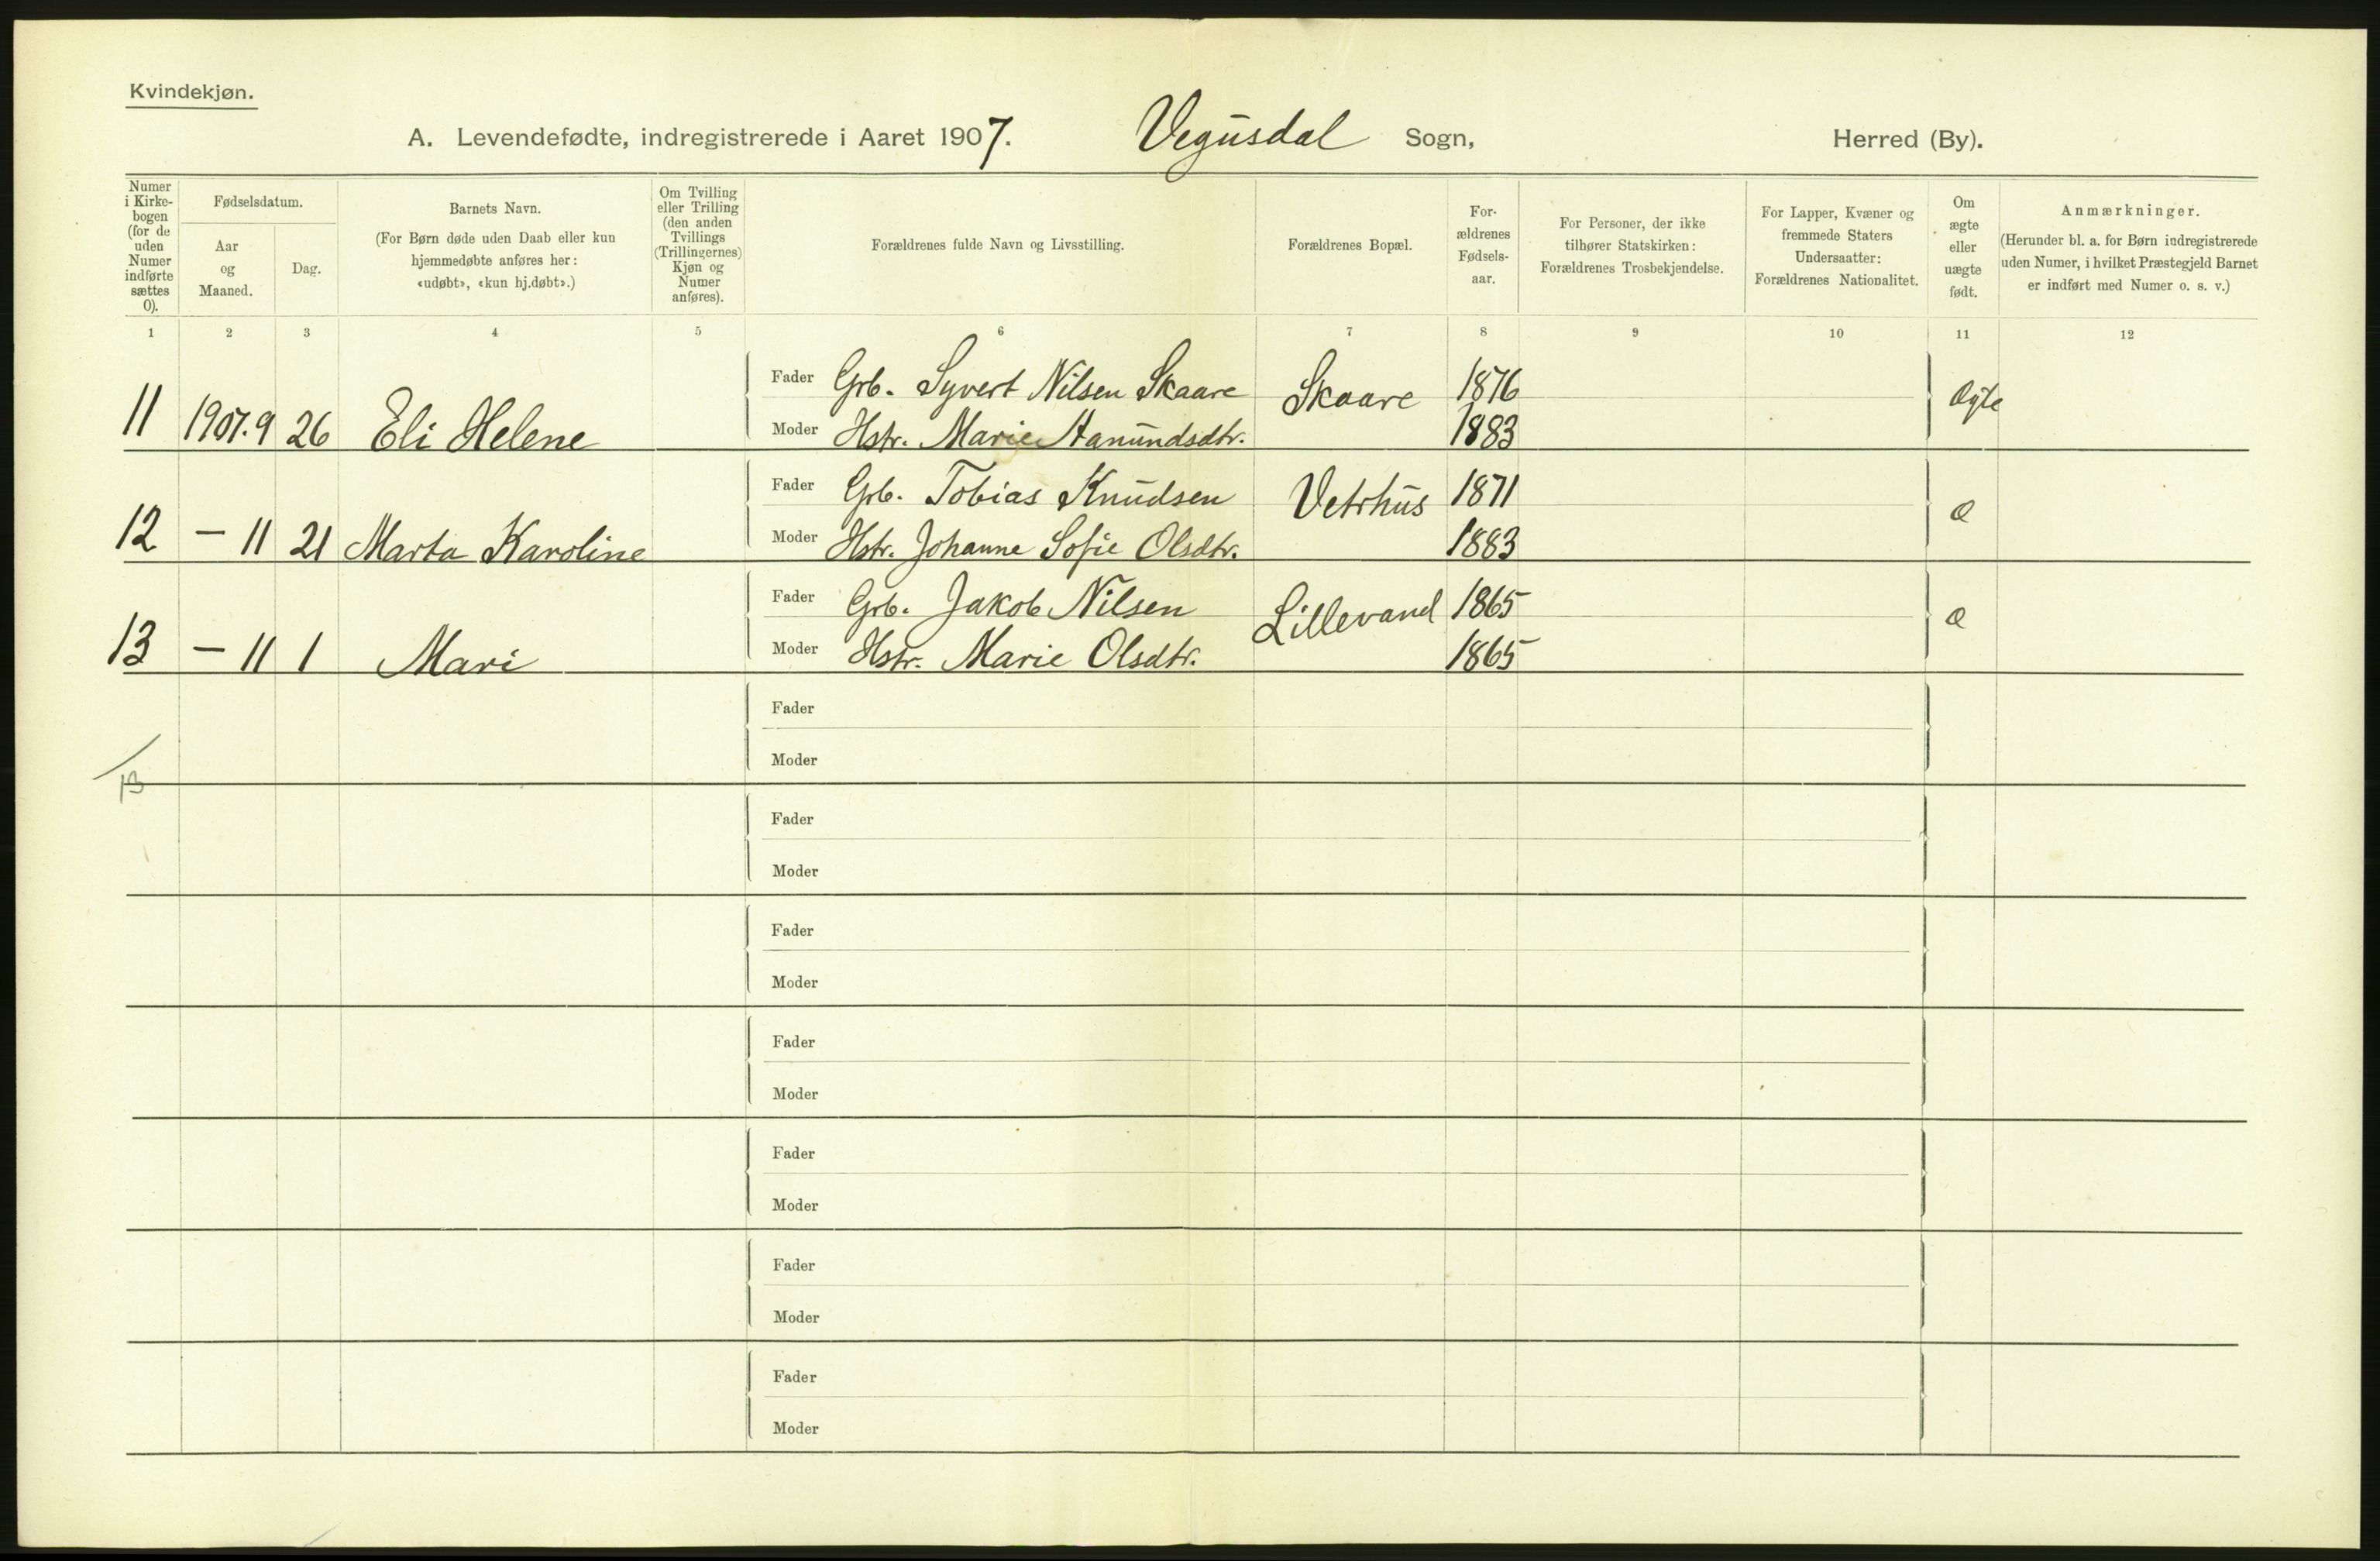 Kvindekjøn.
A. Levendefødte, indregistrerede i Aaret 1907. Vegusdal Sogn, Herred (By).
Numer i Kirke-bogen (for de uden Numer indførte sættes 0).
Fødselsdatum.
Aar og Maaned.
Dag.
Barnets Navn.
(For Børn døde uden Daab eller kun hjemmedøbte anføres her: «udøbt», «kun hj.døbt».)
Om Tvilling eller Trilling (den anden Tvillings (Trillingernes) Kjøn og Numer anføres).
Forældrenes fulde Navn og Livsstilling.
Forældrenes Bopæl.
For-ældrenes Fødsels-aar.
For Personer, der ikke tilhører Statskirken: Forældrenes Trosbekjendelse.
For Lapper, Kvæner og fremmede Staters Undersaatter: Forældrenes Nationalitet.
Om ægte eller uægte født.
Anmærkninger.
(Herunder bl. a. for Børn indregistrerede uden Numer, i hvilket Præstegjeld Barnet er indført med Numer o. s. v.)
1 2 3 4 5 6 7 8 9 10 11 12
Fader Grb. Syvert Nilsen Skaare Skaare 1876 Ægte
11 1907.9 26 Eli Helene Moder Hstr. Marie Aanundsdtr. 1883
Fader Grb. Tobias Knudsen Vetrhus 1871 Æ
12 — 11 21 Marta Karoline Moder Hstr. Johanne Sofie Olsdtr. 1883
Fader Grb. Jakob Nilsen Lillevand 1865 Æ
13 — 11 1 Mari Moder Hstr. Marie Olsdtr. 1865
Fader
Moder
13
Fader
Moder
Fader
Moder
Fader
Moder
Fader
Moder
Fader
Moder
Fader
Moder